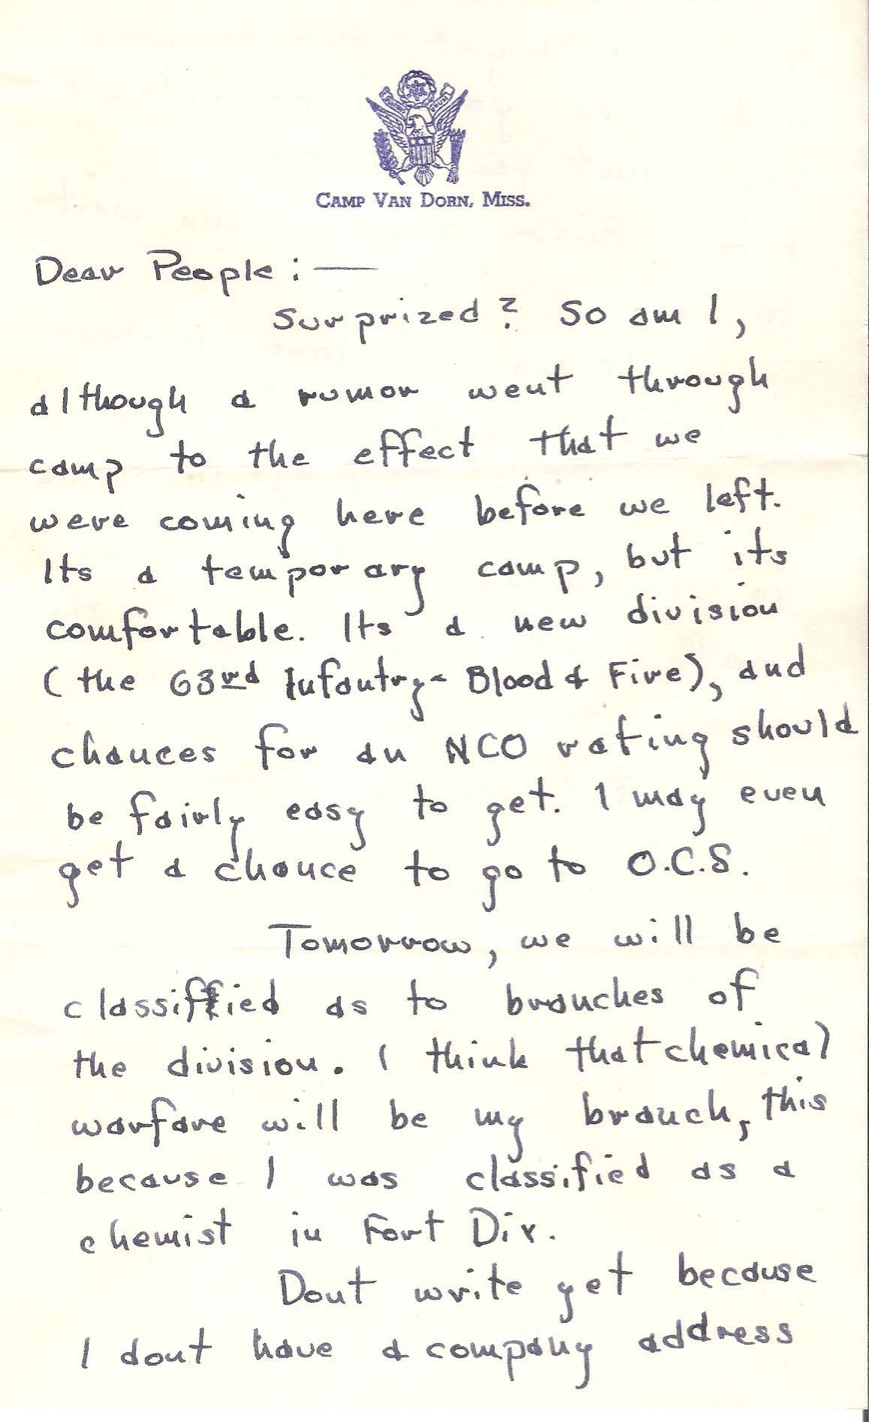 CAMP VAN DORN, MISS.
Dear People : —
Surprized? So am I,
although a rumor went through
camp to the effect that we
were coming here before we left.
Its a temporary camp, but its
comfortable. Its a new division
(the 63rd Infantry - Blood & Fire), and
chances for an NCO rating should
be fairly easy to get. I may even
get a chance to go to O.C.S.
Tomorrow, we will be
classified as to branches of
the division. I think that chemical
warfare will be my branch, this
because I was classified as a
chemist in Fort Dix.
Dont write yet because
I dont have a company address